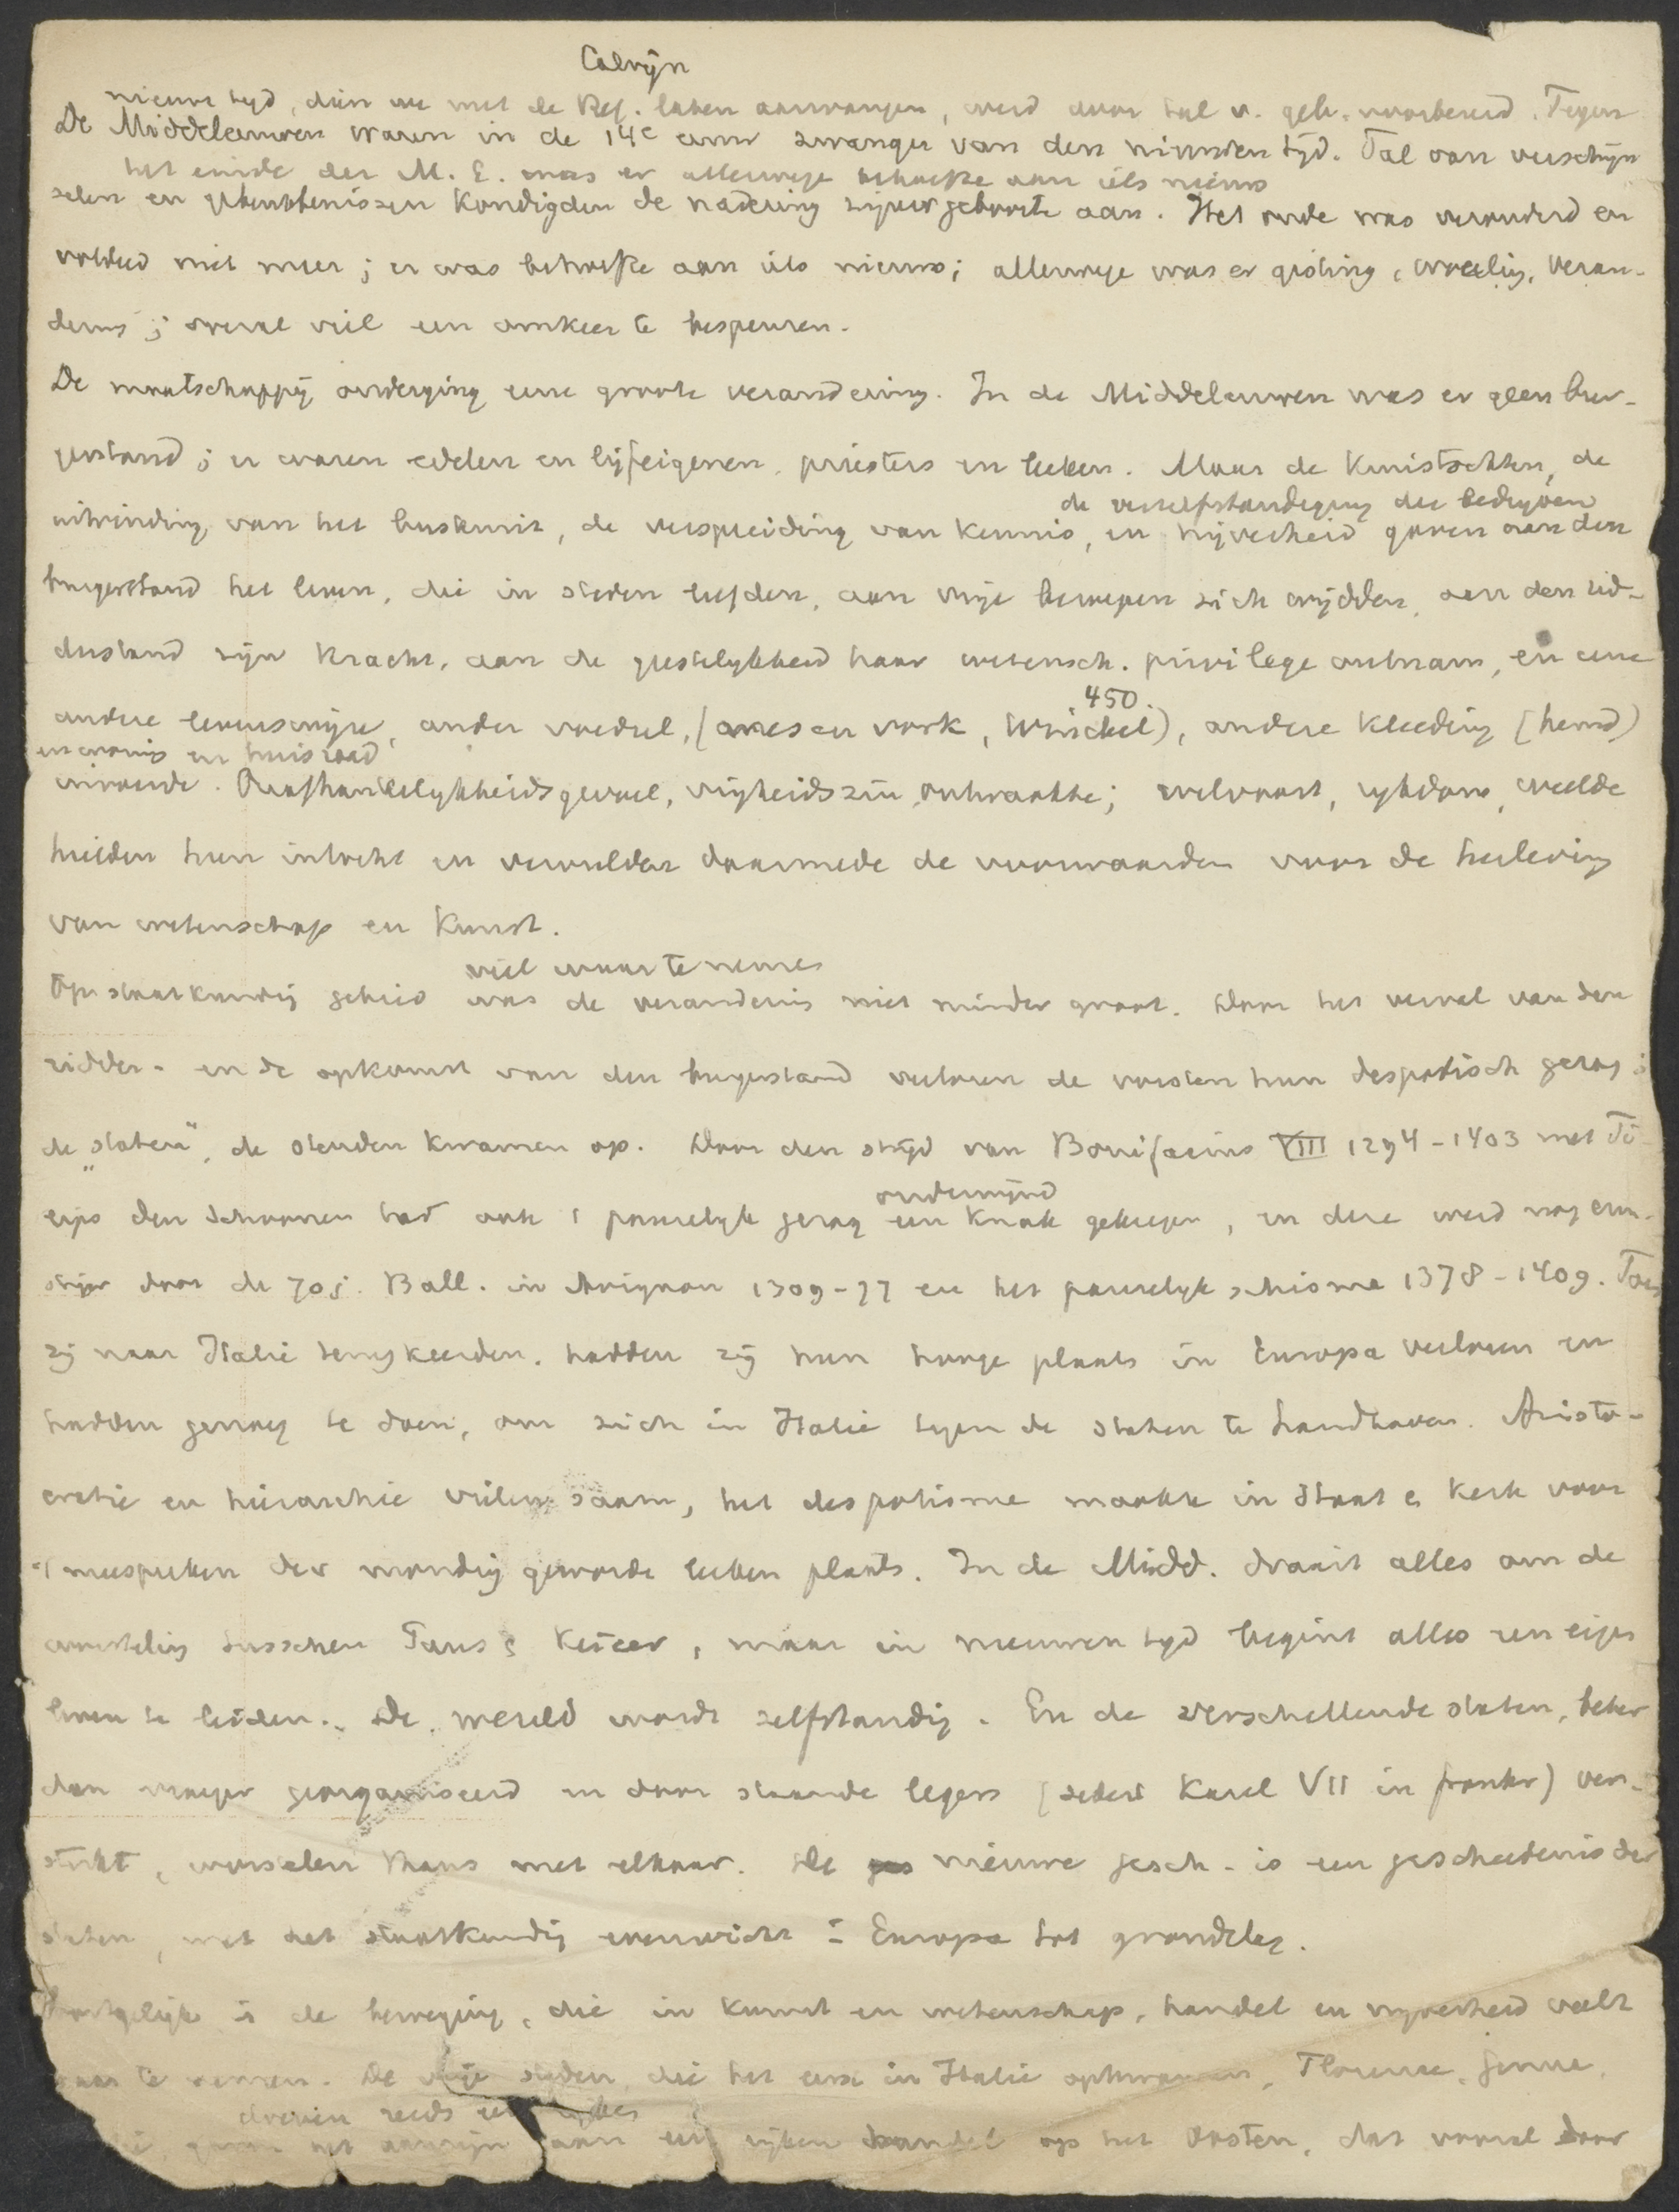 Calvijn
nieuwe tyd, dien we met de Ref. laten aanvangen, werd door tal v. geb. voorbereid. Tegen
De Middeleeuwen waren in de 14e eeuw zwanger van den nieuwen tijd. Tal van verschijn
het einde der M. E. was er allerwege behoefte aan iets nieuws
selen en gebeurtenissen kondigden de nadering zijner geboorte aan. Het oude was verouderd en
voldeed niet meer; er was behoefte aan iets nieuws; allerwege was er gisting, woeling, veran-
dering; overal viel een omkeer te bespeuren.
De maatschappij onderging eene groote verandering. In de Middeleeuwen was er geen bur-
gerstand; er waren edelen en lijfeigenen, priesters en leeken. Maar de Kruistochten, de
de verzelfstandiging der bedrijven
uitvinding van het buskruit, de verspreiding van kennis, en nijverheid gaven aan den
burgerstand het leven, die in steden leefden, aan vrije beroepen zich wijdden, aan den rid-
derstand zijn kracht, aan de geestelykheid haar wetensch. privilege ontnam, en eene
450.
andere levenswijze, ander voedsel, (mes en vork, Winckel), andere kleeding (hemd)
en woning en huisraad
invoerde. Onafhankelykheidsgevoel, vrijheidszin ontwaakte; welvaart, rykdom, weelde
hielden hun intocht en vervulden daarmede de voorwaarden voor de herleving
van wetenschap en kunst.
viel waar te nemen
Op staatkundig gebied was de verandering niet minder groot. Door het verval van den
ridder- en de opkomst van den burgerstand verloren de vorsten hun despotisch gezag;
de "staten", de steden kwamen op. Door den strijd van Bonifacius VIII 1294-1403 met Fi-
ondermijnd
lips den Schoonen had ook 't pauselyk gezag een knak gekregen, en deze werd nog ern-
stiger door de 70j. Ball. in Avignon 1309-77 en het pauselyk schisma 1378-1409. Toen
zij naar Italië terugkeerden, hadden zij hun hooge plaats in Europa verloren en
hadden genoeg te doen, om zich in Italië tegen de staten te handhaven. Aristo-
cratie en hierarchie vielen saam, het despotisme maakte in staat en kerk voor
't meespreken der mondig geworden leeken plaats. In de Midd. draait alles om de
worsteling tusschen Paus en Keizer, maar in nieuwen tyd begint alles een eigen
leven te leiden. De wereld wordt zelfstandig. En de verschillende staten, beter
dan vroeger georganiseerd en door staande legers (sedert Karel VII in Frankr) ver-
sterkt, worstelen thans met elkaar. De nieuwe gesch. is een geschiedenis der
staten, met het staatkundig evenwicht in Europa tot grondslag.
is de beweging, die in kunst en wetenschap, handel en nyverheid valt
waar te nemen. De vrije steden, die het eerst in Italië opkwamen, Florence, Genua,
dreven reeds een
gaven het aanzijn aan een rijken handel op het Oosten, dat vooral door